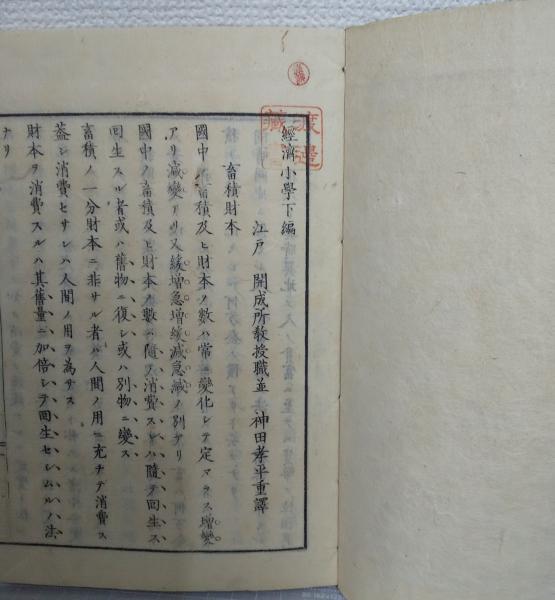 經濟小學下編
江戸 開成所教授職並 神田孝平重譯
畜積財本
國中ノ畜積及ヒ財本ノ數ハ常ニ變化シテ定マラス增變
アリ減變アリ又緩增急增緩減急減ノ別アリ
國中ノ畜積及ヒ財本ノ數ハ隨テ消費スレハ隨テ回生ス
回生スル者或ハ舊物ニ復シ或ハ別物ニ變ス
畜積ノ一分財本ニ非サル者ハ人間ノ用ニ充チテ消費ス
蓋シ消費セサレハ人間ノ用ヲ為サス
財本ヲ消費スルハ其舊量ニ加倍シテ回生セシムルハ法
ナリ
渡邉
藏